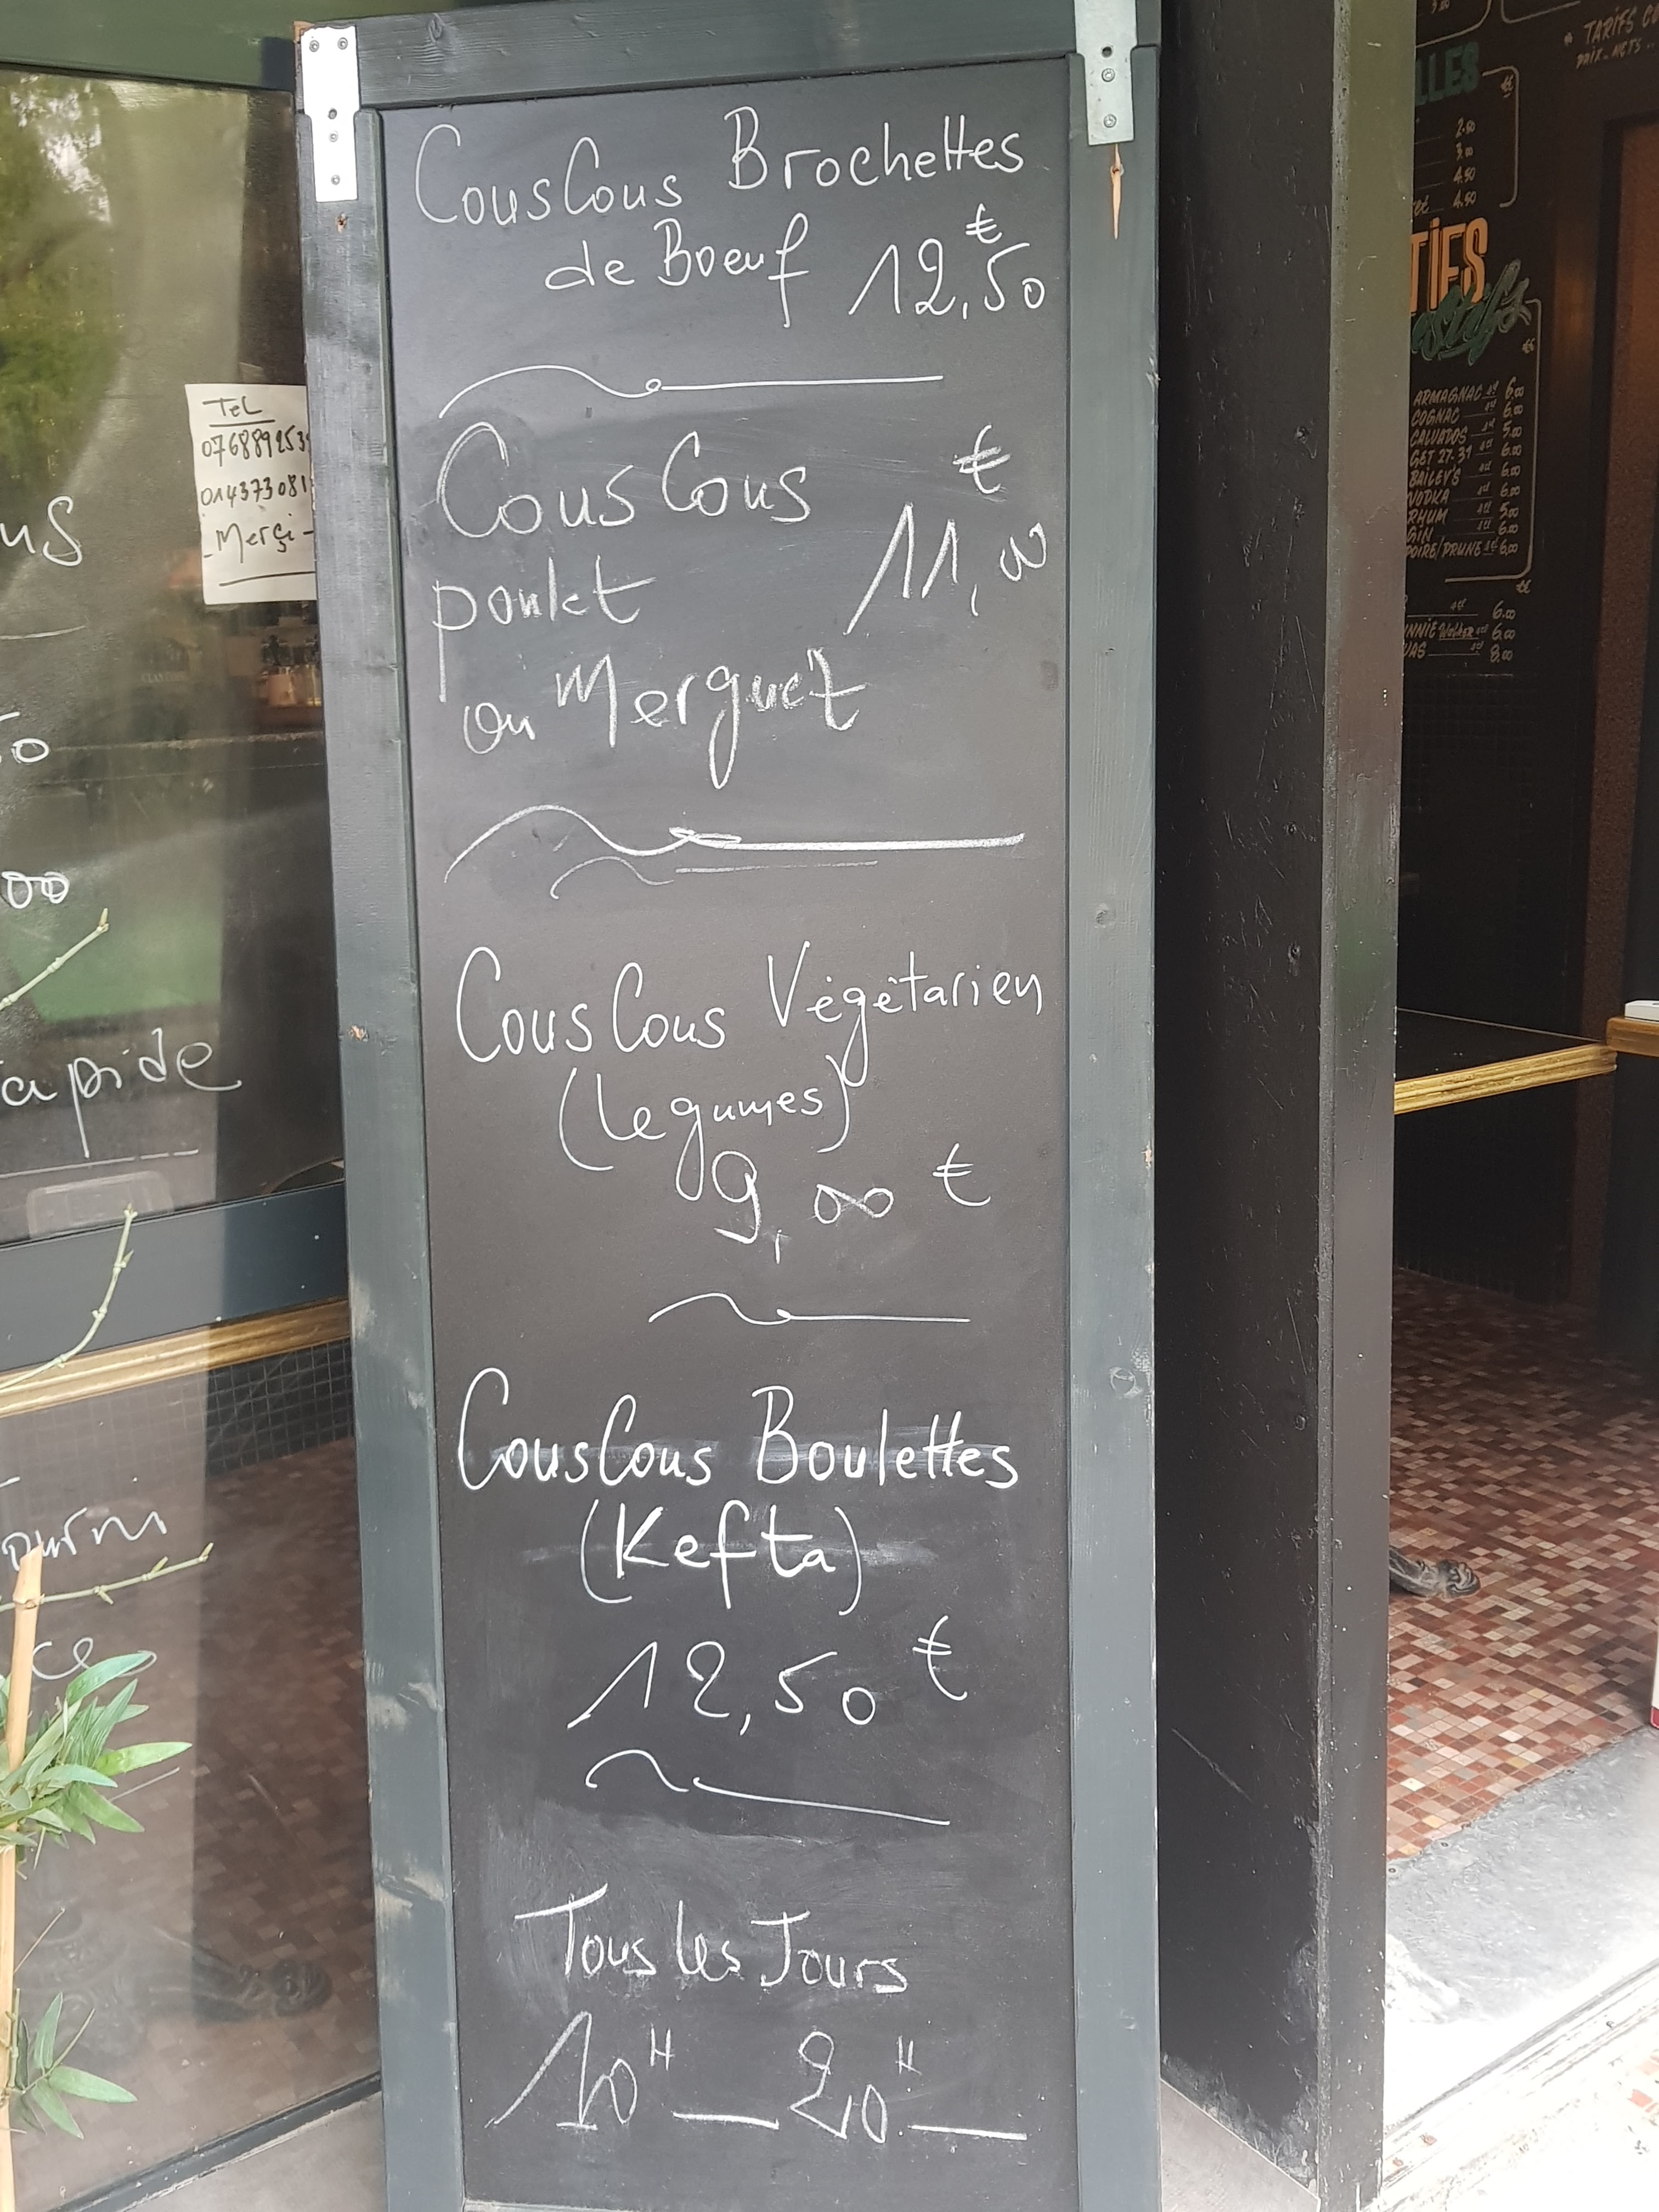 CousCous Brochettes
de Boeuf 12,50 €
CousCous €
poulet 11,00
ou Merguez
CousCous Végétarien
(Legumes)
9,00 €
CousCous Boulettes
(Kefta)
12,50 €
Tous les Jours
10H — 20H —
Tel
076889253
014373081
- Merçi -
00
TARIFS
PRIX NETS
2.50
3.00
4.50
4.50
ARMAGNAC 4cl 6.00
COGNAC 4cl 6.00
CALVADOS 4cl 5.00
GET 27-31 4cl 6.00
BAILEY'S 4cl 6.00
VODKA 4cl 6.00
RHUM 4cl 5.00
GIN 4cl 6.00
POIRE/PRUNE 4cl 6.00
4cl 6.00
Walker 4cl 6.00
4cl 8.00